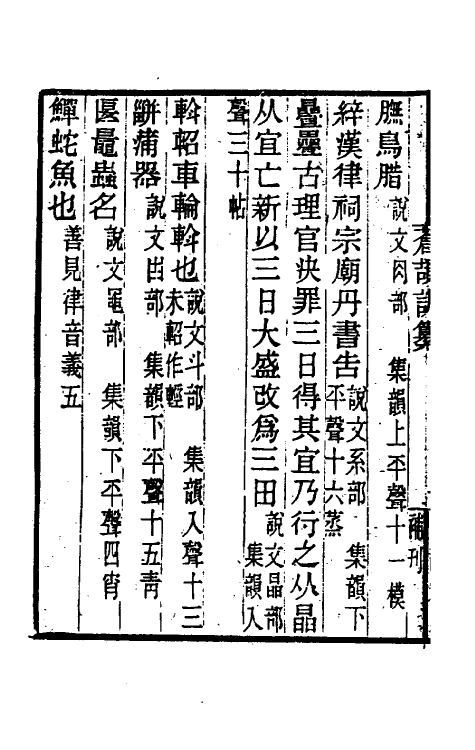 膴鳥腊 說文肉部 集韻上平聲十一模
綷漢律祠宗廟丹書告 說文系部 集韻下平聲十六蒸
疊疊古理官決罪三日得其宜乃行之从晶
从宜亡新以三日大盛改爲三田 說文晶部 集韻入
聲三十帖
斡軺車輪斡也 說文斗部 未軺作輕 集韻入聲十三
𤭛蒲器 說文甾部 集韻下平聲十五青
鼂蟲名 說文黽部 集韻下平聲四宵
鱓蛇魚也 善見律音義五
補刊